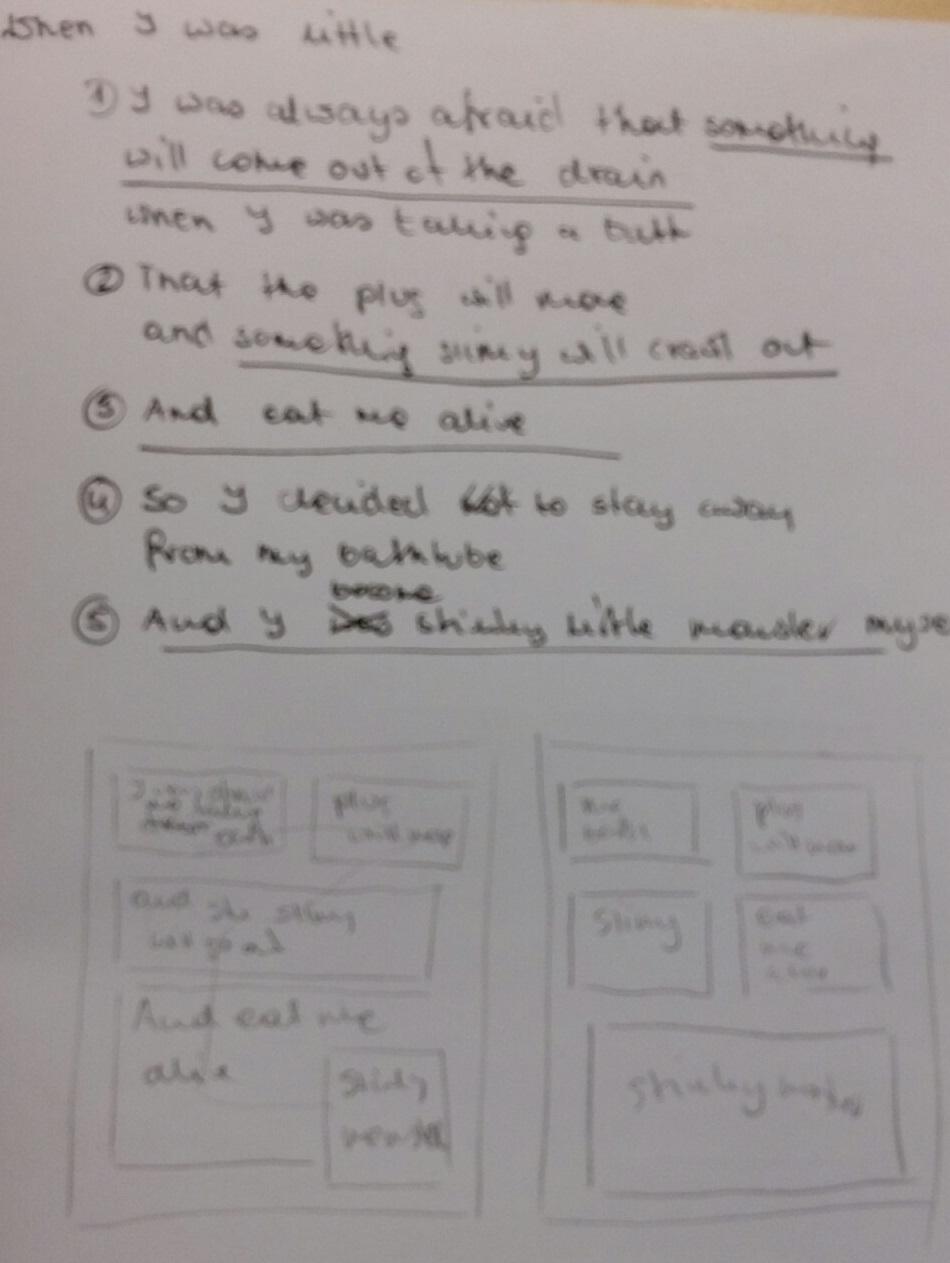 When I was little
① I was always afraid that something
will come out of the drain
when I was taking a bath
② That the plug will move
and something slimy will crawl out
③ And eat me alive
④ So I decided to stay away
from my bathtube
become
⑤ And I stinky little monster myse
plug
will move
and
And eat me
alive
stinky
monster
me
plug
will move
slimy
eat
me
alive
stinky monster